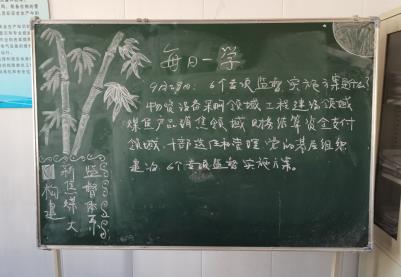 每日一学
6个专项监督实施方案是什么?
物资设备采购领域、工程建设领域
煤焦产品销售领域、财务结算资金支付
领域、干部选任和管理、党的基层组织
建设6个专项监督实施方案。
构建
利焦煤大
监督体系